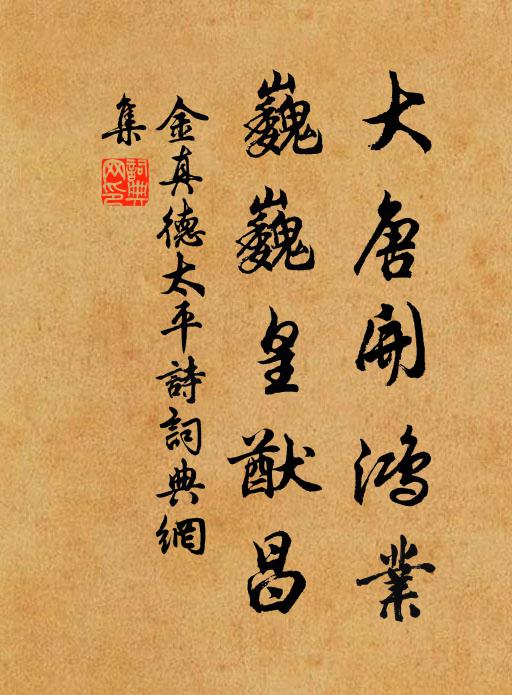 大唐開鴻業
巍巍皇猷昌
金真德太平詩詞典網
集
詞典
网印